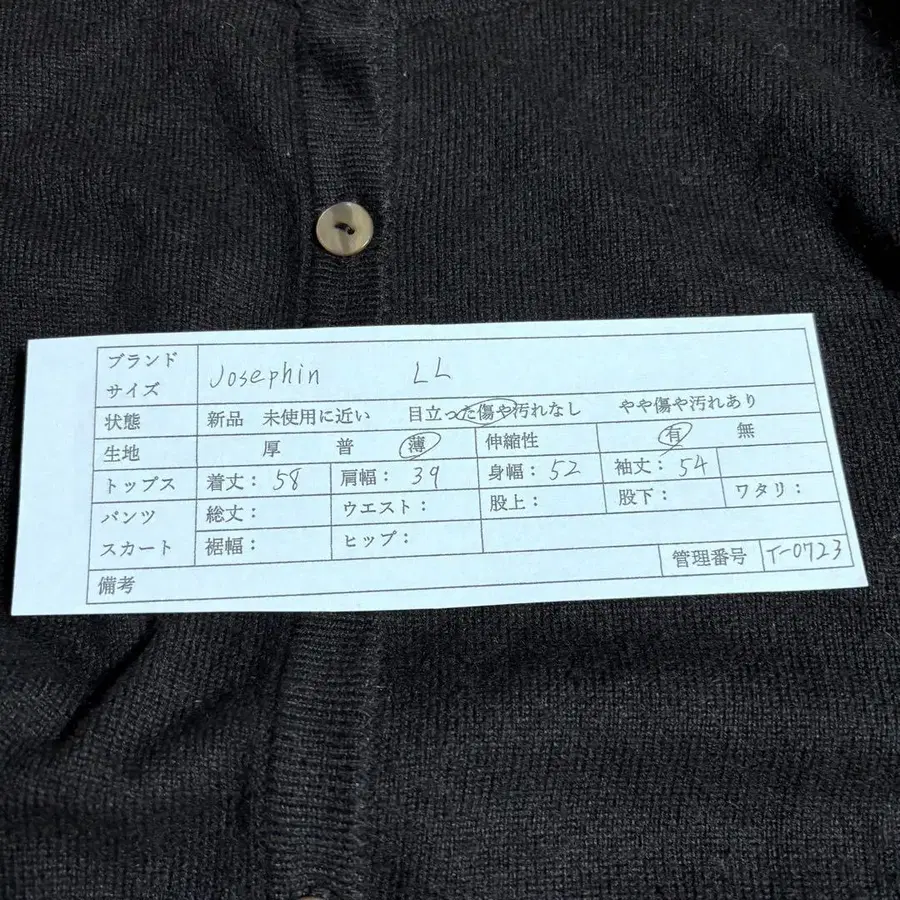 ブランド
サイズ Josephin LL
状態 新品 未使用に近い 目立った傷や汚れなし やや傷や汚れあり
生地 厚 普 薄 伸縮性 有 無
トップス 着丈：58 肩幅：39 身幅：52 袖丈：54
パンツ 総丈： ウエスト： 股上： 股下： ワタリ：
スカート 裾幅： ヒップ：
備考 管理番号 T-0723